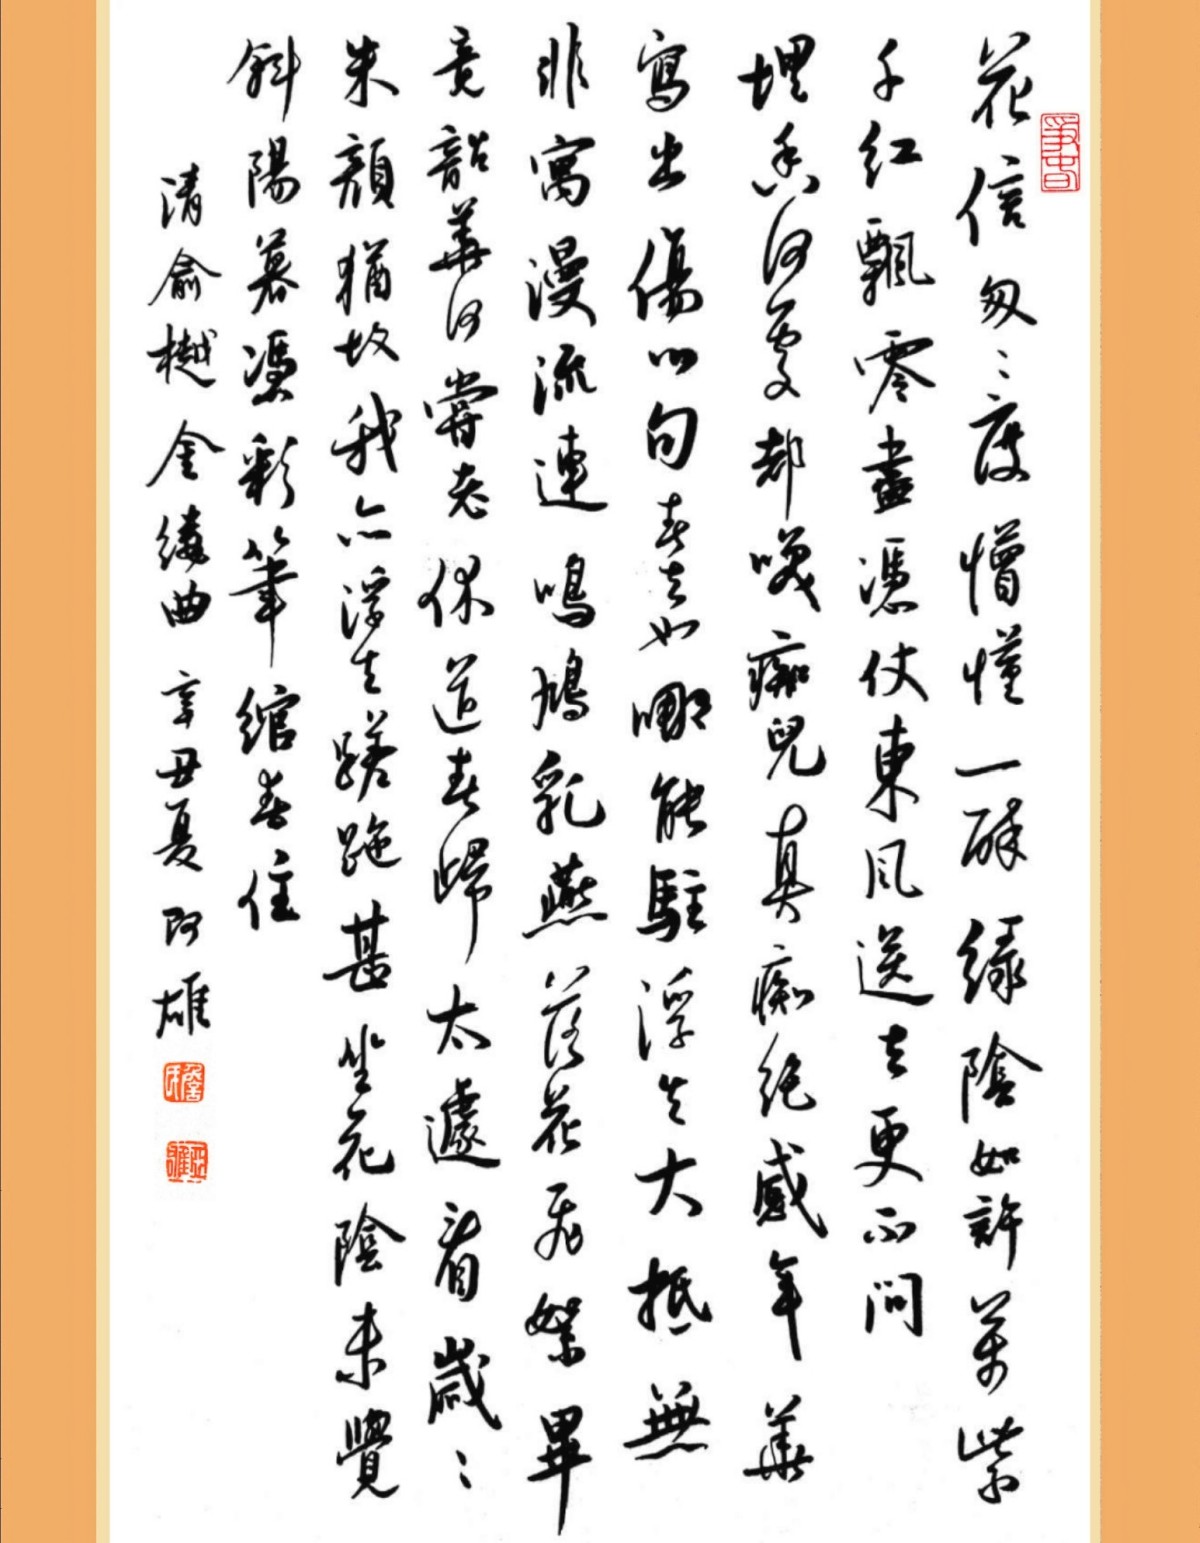 花信匆匆度懵懂一醉綠陰如許萬紫
千紅飄零盡憑仗東風送去更不問
埋香何處却嘆癡兒真癡絕感年華
寫出傷心句春去也哪能駐浮生大抵無
非寓漫流連鳴鳩乳燕落花飛絮畢
竟韶華何嘗老休道春歸太遽看歲歲
朱顏猶故我亦浮生蹉跎甚坐花陰未覺
斜陽暮憑彩筆綰春住
清俞樾金縷曲 辛丑夏阿雄